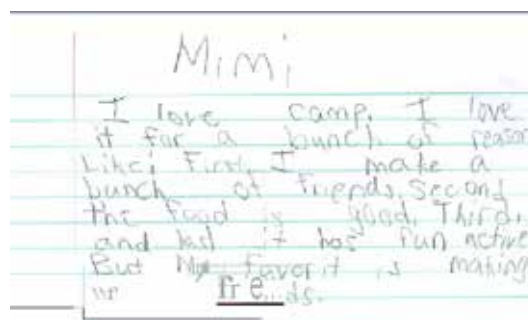 Mimi
I love camp. I love
it for a bunch of reason
Like: First, I make a
bunch of friends. Second
the food is good. Third,
and last it has fun active
But My favorit is making
friends.